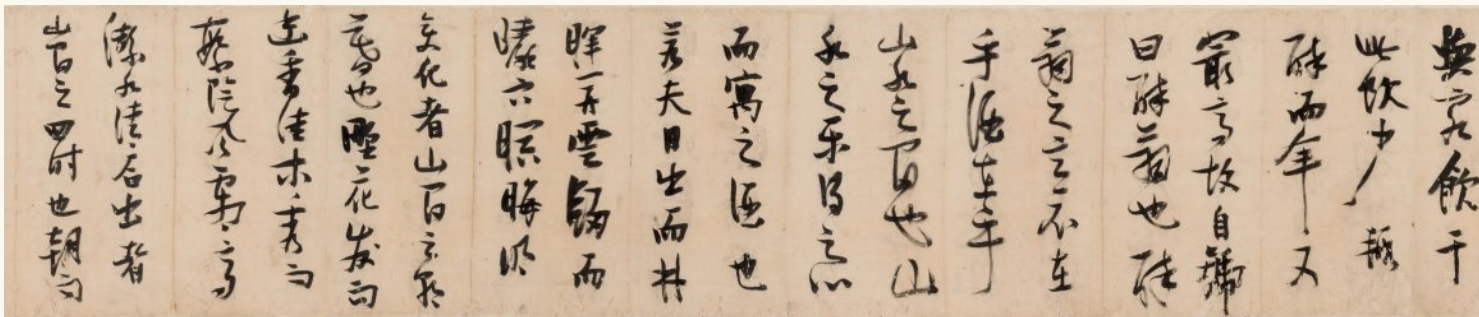 與客飲于
此飲少輒
醉而年又
最高故自號
曰醉翁也醉
翁之意不在
乎酒在乎
山水之間也山
水之樂得之心
而寓之酒也
若夫日出而林
暉開雲歸而
巖穴暝晦明
變化者山間之朝
暮也野花發而
幽香佳木秀而
繁陰風霜高
潔水清石出者
山間之四時也朝而